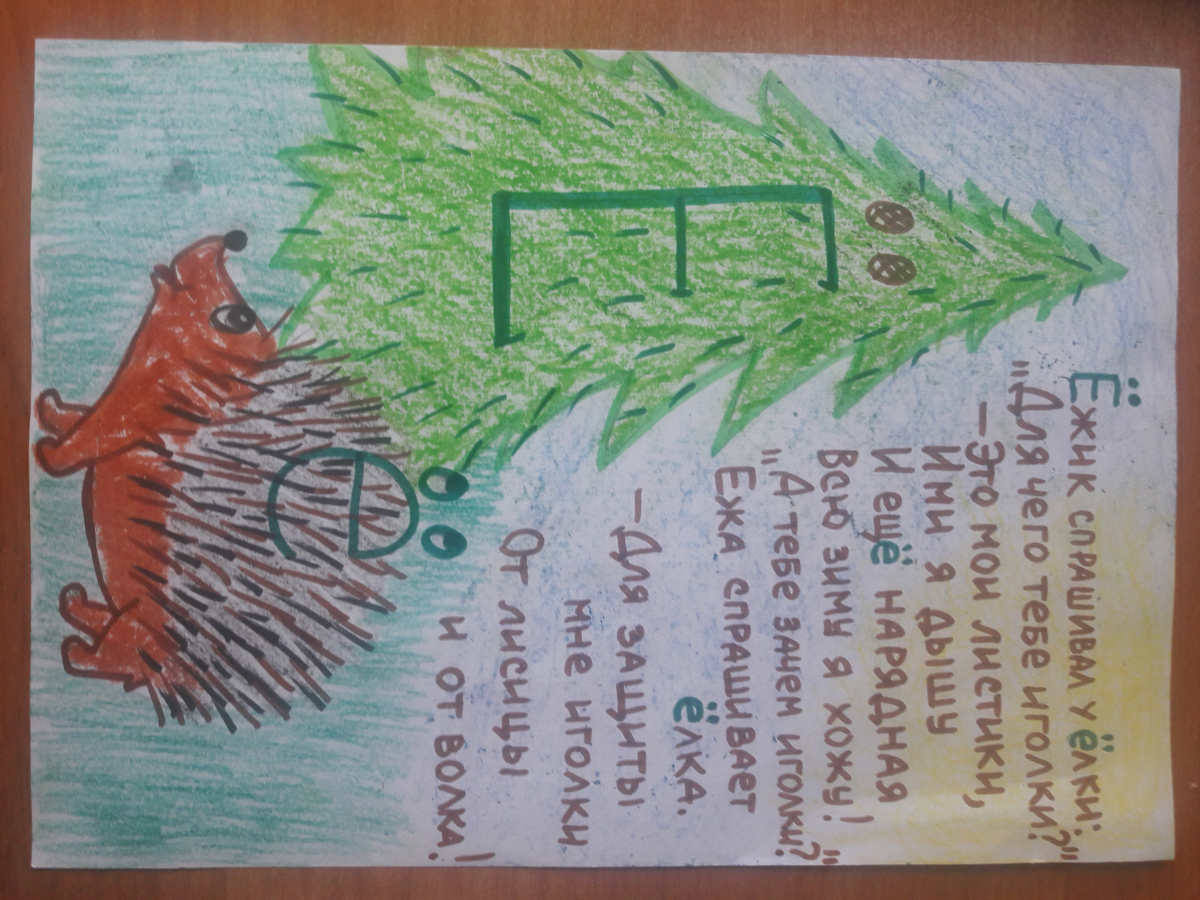 Ё
ё
Ёжик спрашивал у ёлки:
"Для чего тебе иголки?"
-Это мои листики,
Ими я дышу
И ещё нарядная
Всю зиму я хожу!"
"А тебе зачем иголки?
Ежа спрашивает
ёлка.
-Для защиты
мне иголки
От лисицы
и от волка!